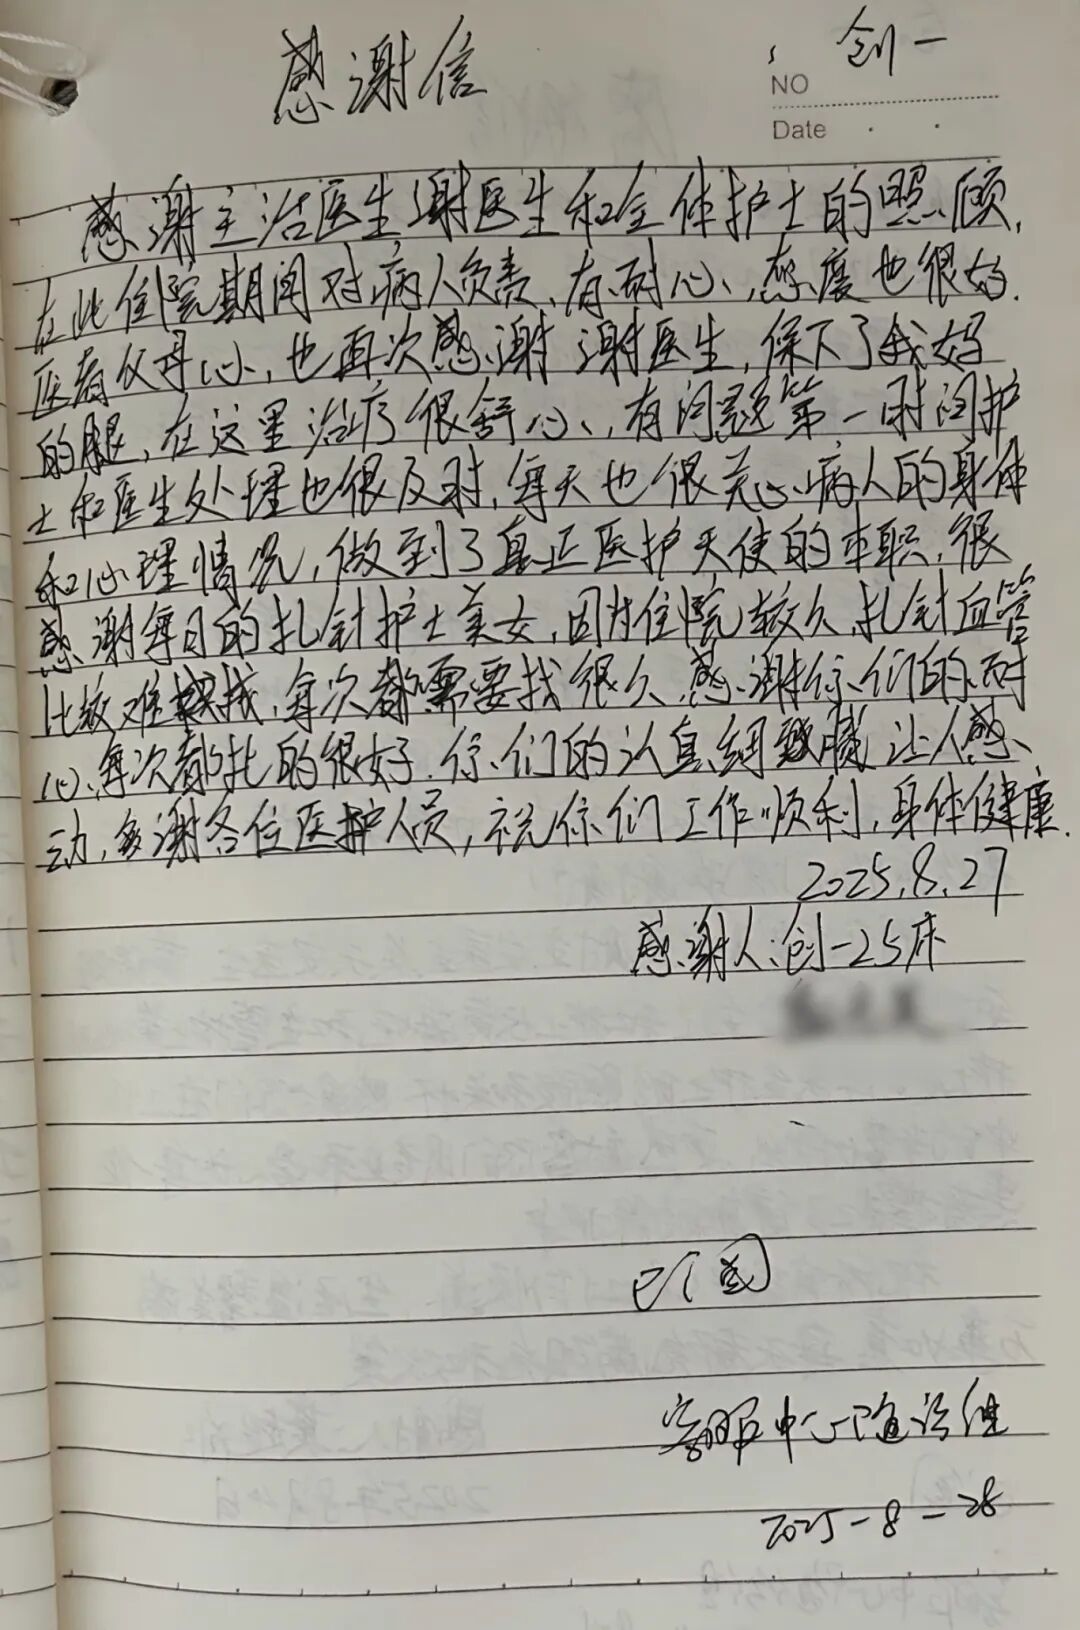 创一
感谢信
NO
Date
感谢主治医生谢医生和全体护士的照顾,
在此住院期间对病人负责、有耐心,态度也很好.
医者仪母心,也再次感谢 谢医生,保下了我妈
的腿,在这里治疗很舒心、,有问题第一时间护
士和医生处理也很及时,每天也很关心病人的身体
和心理情况,做到了真正医护天使的本职,很
感谢每日的扎针护士美女,因为住院较久,扎针血管
比较难找,每次都需要找很久,感谢你们的耐
心,每次都扎的很好.你们的认真细致让人感
动,多谢各位医护人员,祝你们工作顺利,身体健康.
2025.8.27
感谢人:创一25床
客服中心随访组
2025-8-28